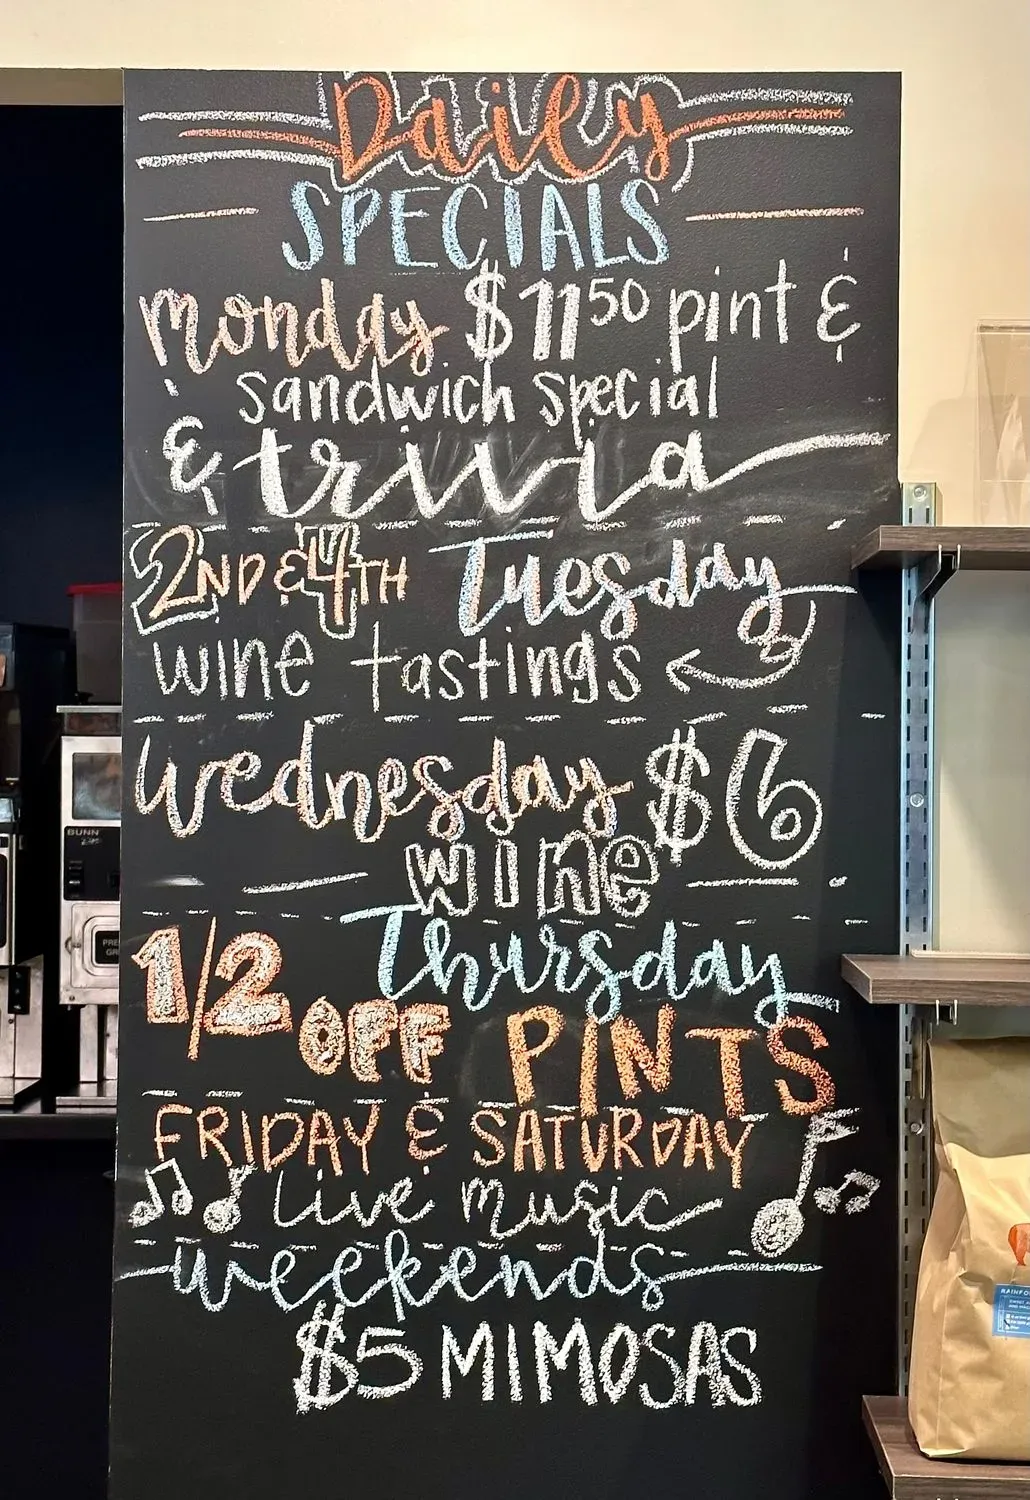 Daily
SPECIALS
Monday $11⁵⁰ pint &
sandwich special
& trivia
2ND & 4TH Tuesday
wine tastings
Wednesday $6
wine
Thursday
1/2 OFF PINTS
FRIDAY & SATURDAY
Live music
weekends
$5 MIMOSAS
BUNN